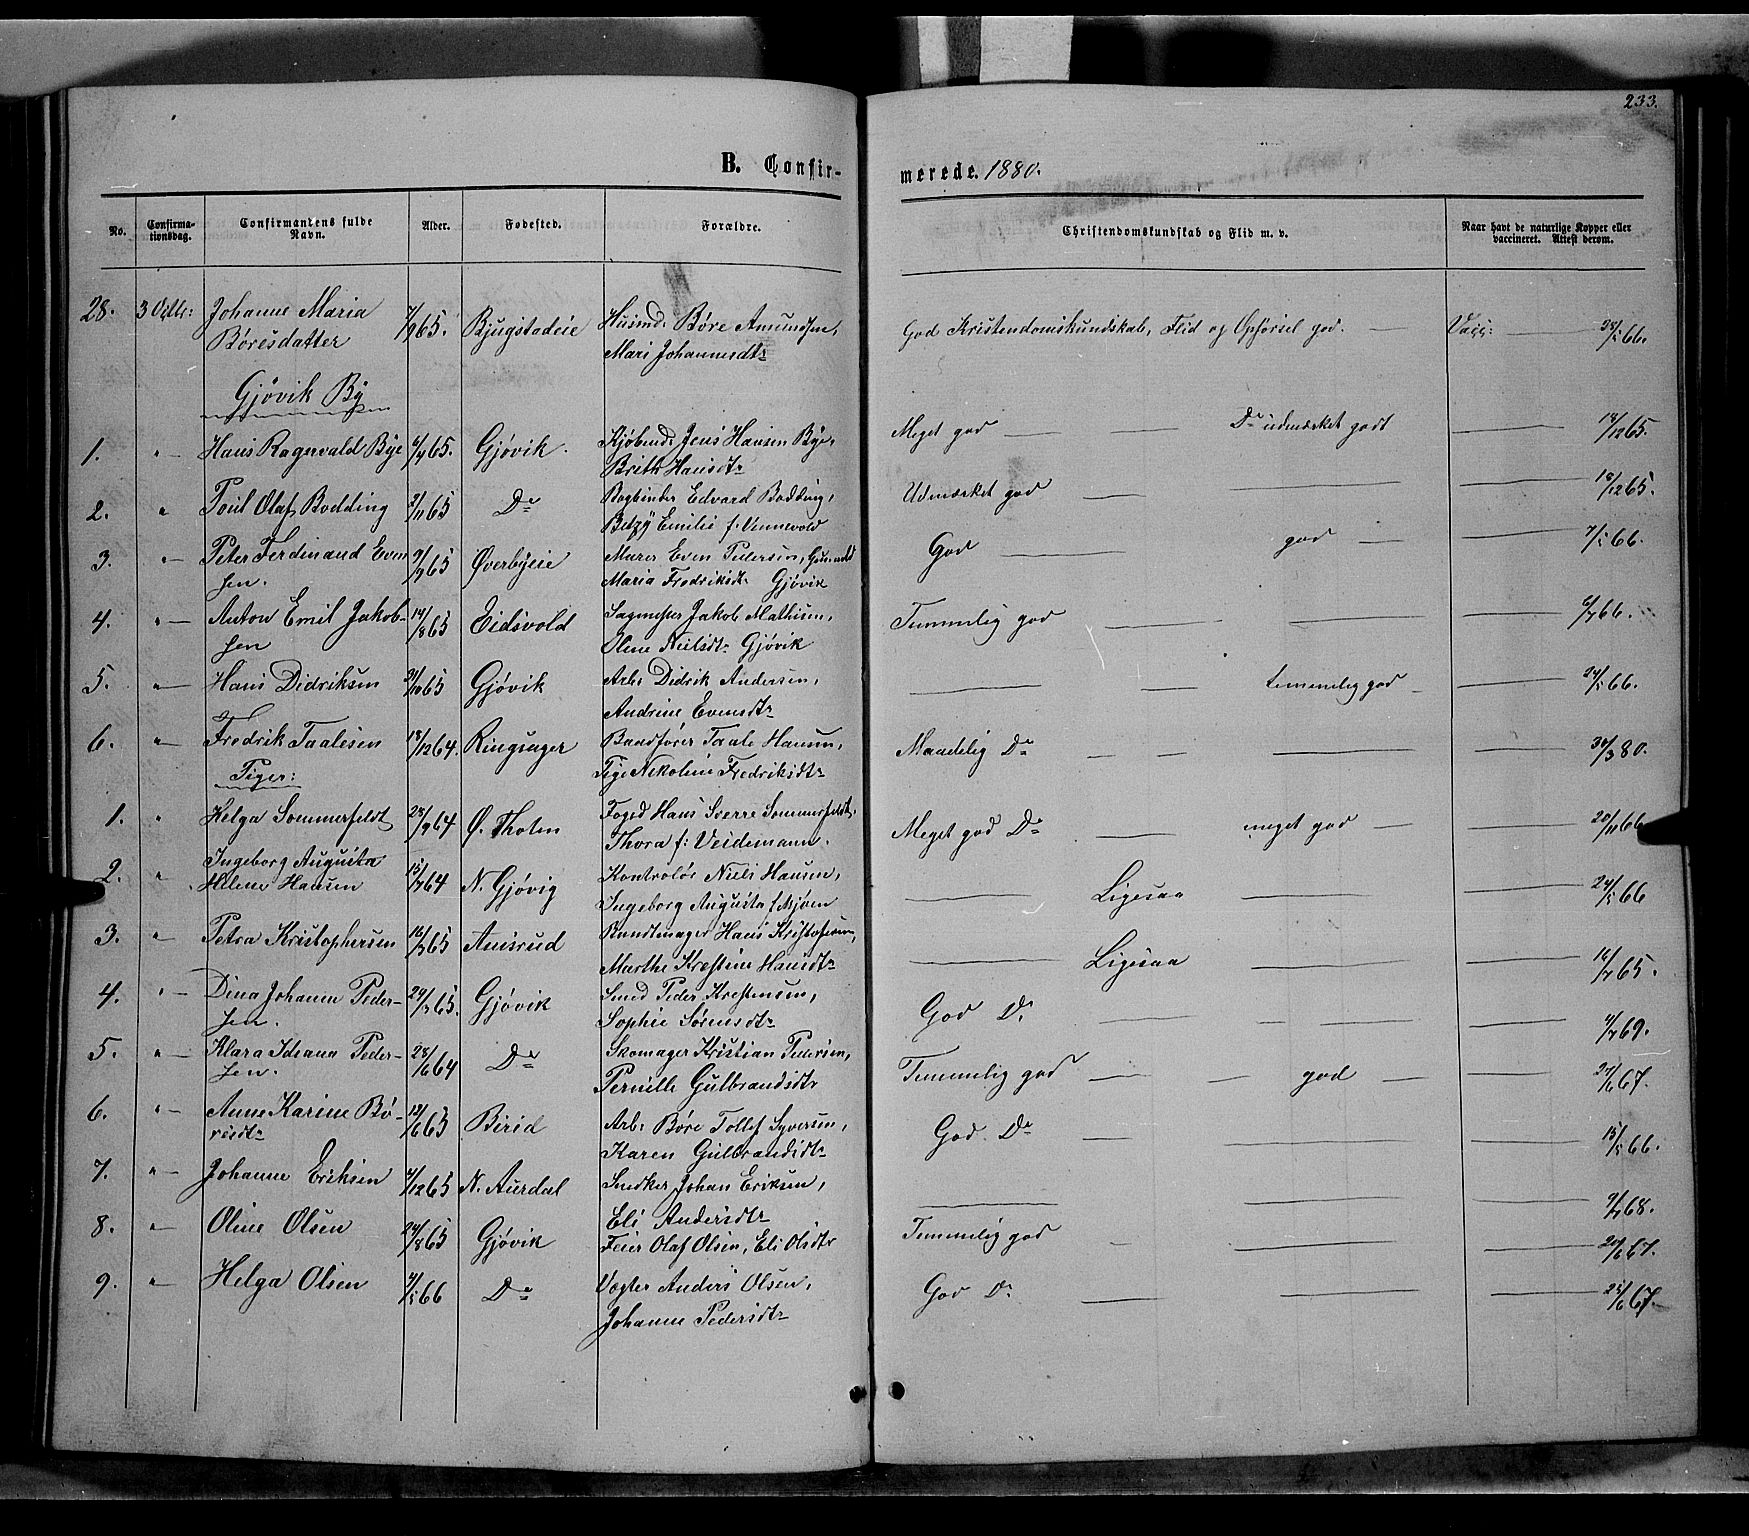 233.
B. Confir-
merede. 1880.
No.
Confirma-
tionsdag.
Confirmantens fulde
Navn.
Alder.
Fødested.
Forældre.
Christendomskundskab og Flid m. v.
Naar havt de naturlige Kopper eller
vaccineret. Attest derom.
28. 3 Octbr: Johanne Maria 65. Bjugstadeie Husmd: Børe Amundsen,
Børesdatter Mari Johannesdtr
God Kristendomskundskab, Flid og Opførsel god. — Vacc: — 66.
Gjøvik By
1. " — Hans Ragnvald Bye 65. Gjøvik. Kjøbmd: Jens Hansen Bye,
Brith Hansdtr
Meget god — — Do udmærket godt — 18/12 65.
2. " Poul Olaf Bodding 2/11 65 Do Bogbinder Edvard Bodding,
Betzy Emilie f. Vennevold
Udmærket god — — — 18/12 65.
3. " — Peter Ferdinand Even 65 Øverbyeie Murer Even Pedersen,
sen. Maria Fredriksdtr Gjøvik
God — god — — 66.
4. " — Anton Emil Jakob- 14/8 65 Eidsvold Sagmester Jakob Mathisen,
sen Oline Nielsdtr Gjøvik
Temmelig god — — — 66.
5. " — Hans Didriksen 21/10 65 Gjøvik Arb: Didrik Andersen,
Andrine Evensdtr
— — temmelig god — — 66.
6. " — Fredrik Taalesen 18/12 64. Ringsager Baadfører Taale Hansen,
Nikoline Fredriksdtr
Maadelig Do — — — — 30/3 80.
Piger:
1. " Helga Sommerfeldt 64 Ø. Thoten Foged Hans Sverre Sommerfeldt,
Thora f: Veidemann.
Meget god Do — meget god — — 20/11 66
2. " Ingeborg Augusta
Helene Hansen 64 N. Gjøvig Kontrolør Niels Hansen,
Ingeborg Augusta f. Mjøen
— Ligesaa — — 66
3. " Petra Kristophersen 65 Amsrud Bundtmager Hans Kristofersen,
Marthe Kristine Hansdtr
— Ligesaa — — 65.
4. " — Dina Johanne Peder- 65. Gjøvik Smed Peder Kristensen,
sen. Sophie Sørensdtr
God Do — — — — 69.
5. " — Klara Idiana Peder- 28/6 64 Do Skomager Kristian Pedersen,
sen. Pernille Gulbrandsdtr
Temmelig god — — god — — 67.
6. " — Anne Karine Bø- 65 Birid Arb: Børe Tollef Syversen,
resdtr Karen Gulbrandsdtr
God Do — — — 66.
7. " — Johanne Eriksen 65 N. Aurdal Snedker Johan Eriksen,
Eli Andersdtr
— — — 68.
8. " — Oline Olsen 24/8 65 Gjøvik Feier Olaf Olsen, Eli Olsdtr
Temmelig god — — — 67.
9. " Helga Olsen 66 Do Vogter Anders Olsen,
Johanne Pedersdtr
God Do — — — 67.